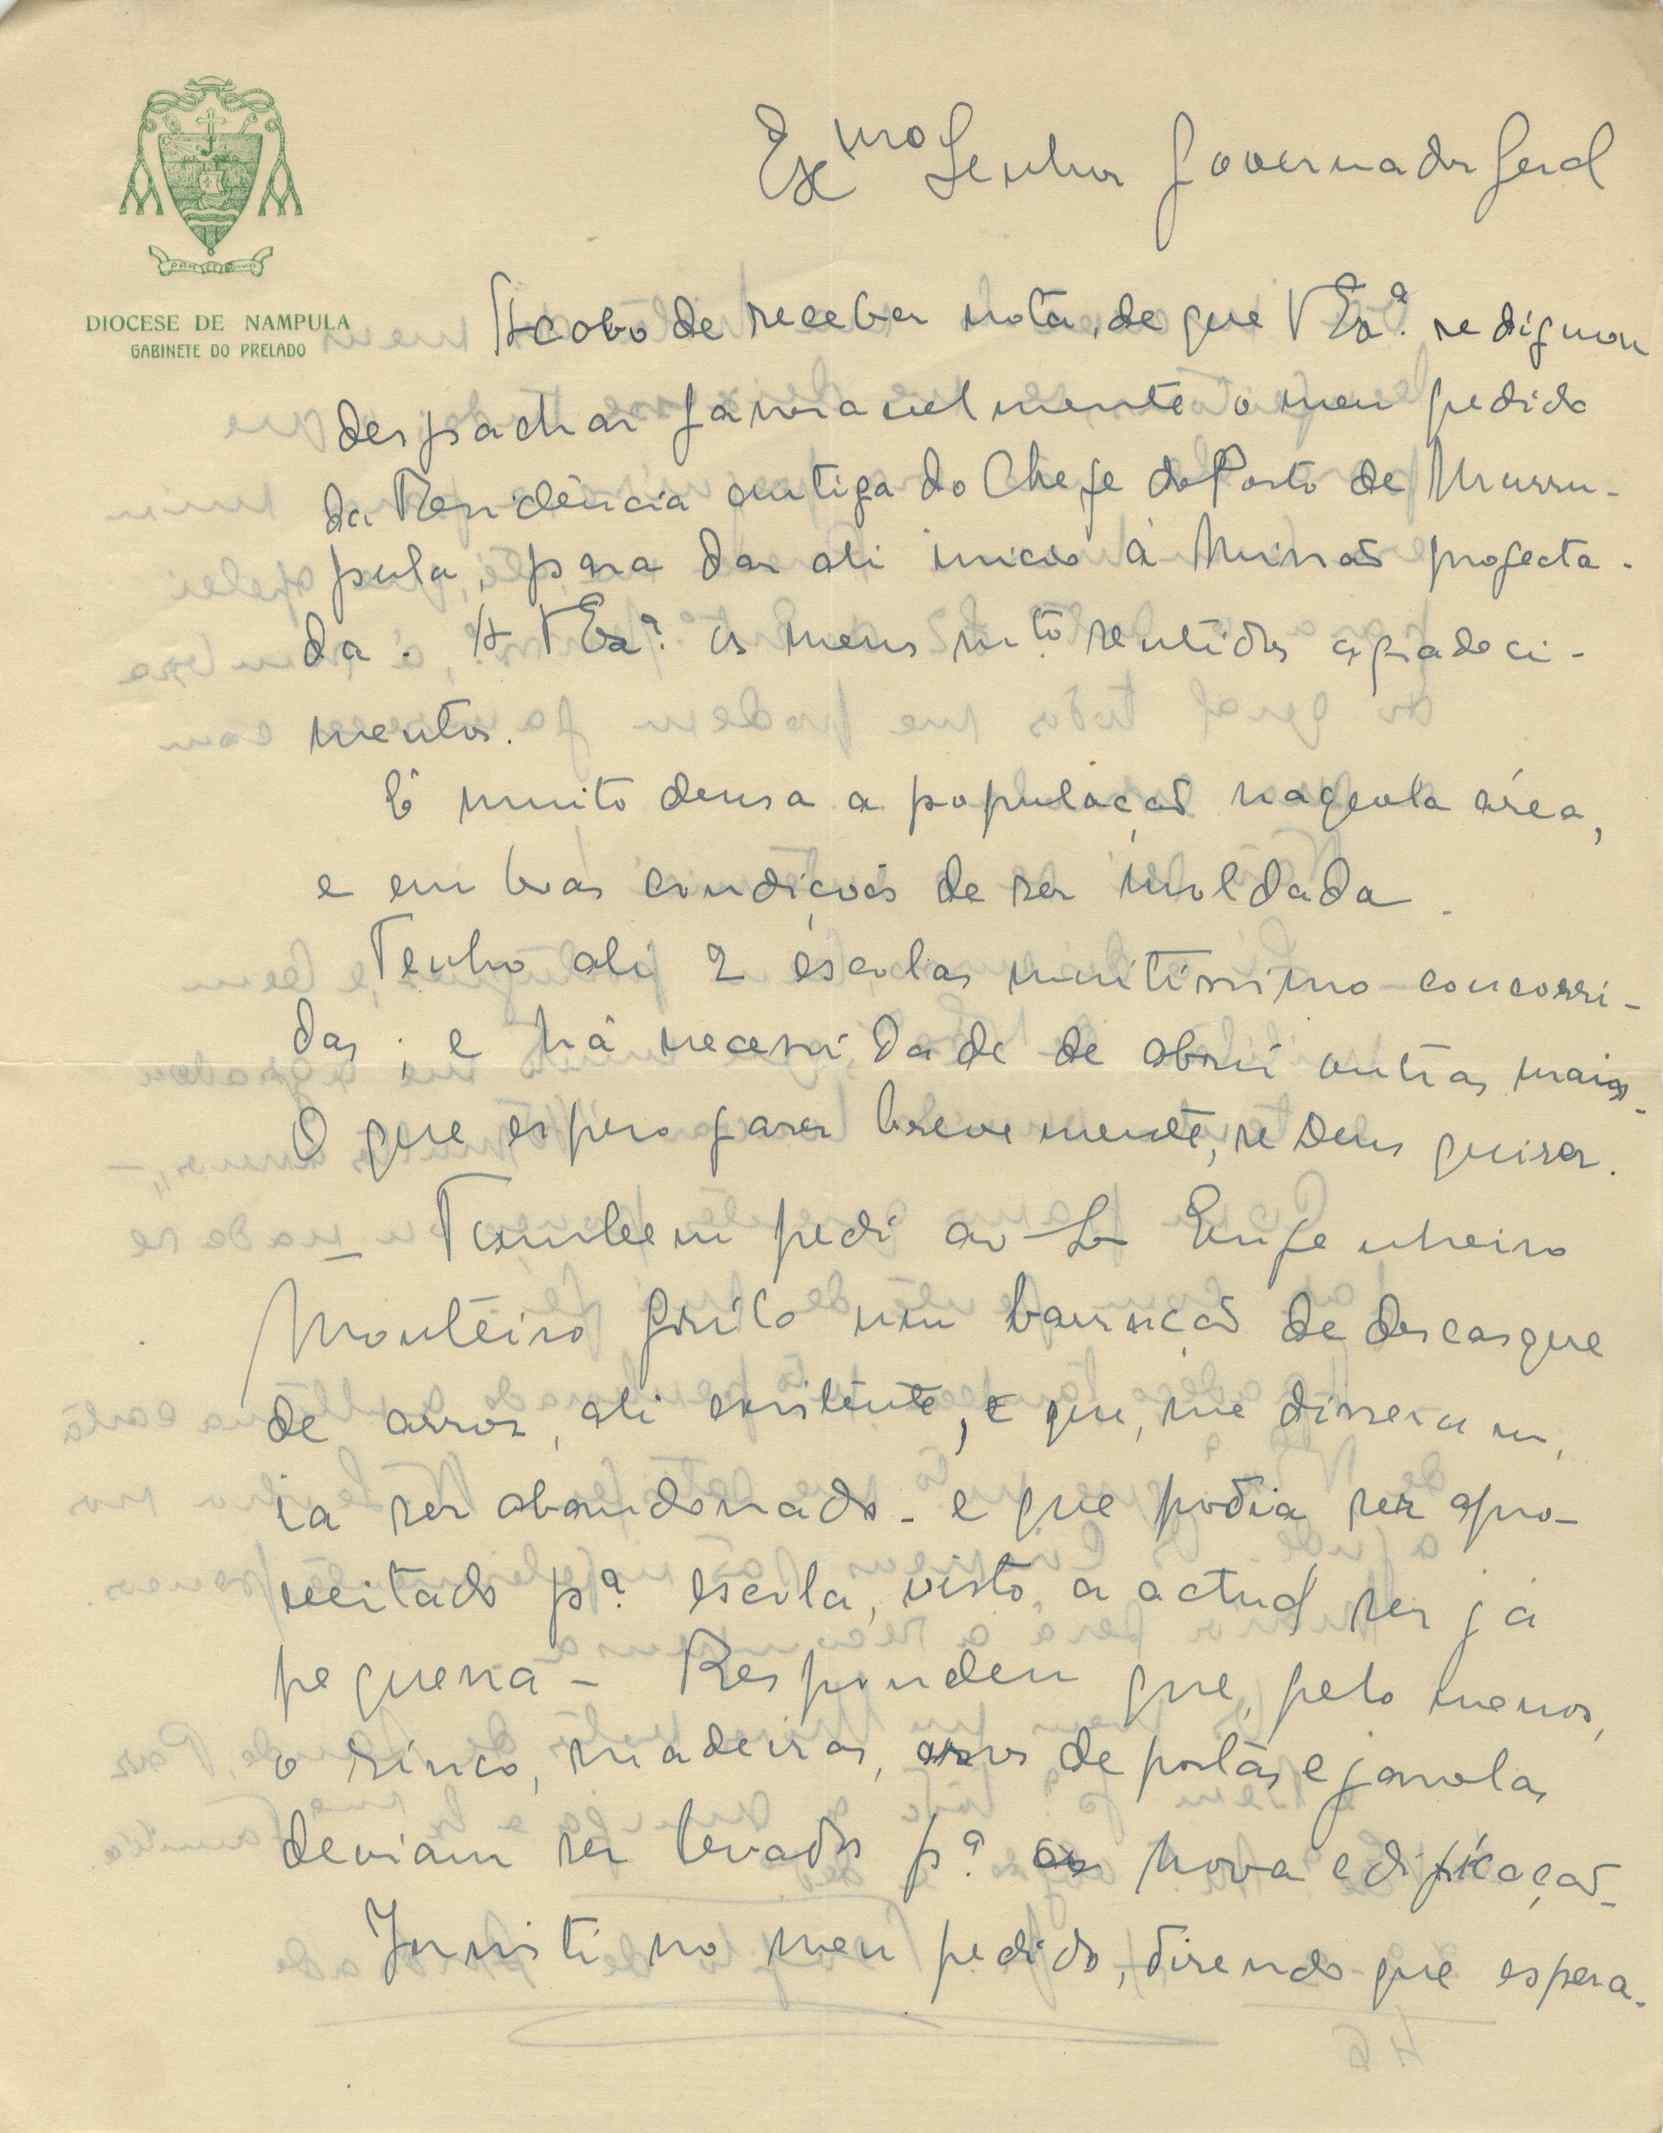 DIOCESE DE NAMPULA
GABINETE DO PRELADO
Exmo Senhor Governador Geral
Acabo de receber nota, de que V Exª. se dignou
despachar favoravelmente o meu pedido
da Residência antiga do Chefe do Posto de Murru-
pula, para dar ali inicio à Missão projecta-
da. A V Exª. os meus mto sentidos agradeci-
mentos.
É muito densa a população naquela área,
e em boas condições de ser moldada.
Tenho ali 2 escolas muitíssimo concorri-
das; e há necessidade de abrir outras mais.
O que espero fazer brevemente, se Deus quiser.
— Tambem pedi ao Sr Engenheiro
Monteiro Grilo um barracão de descasque
de arroz, ali existente, e que, me disseram,
ia ser abandonado - e que podia ser apro-
veitado pª escola, visto a actual ser já
pequena - Respondeu que, pelo menos,
o zinco, madeiras, aros de portas e janelas
deviam ser levados pª a nova edificação.
Insisti no meu pedido, dizendo que espera-